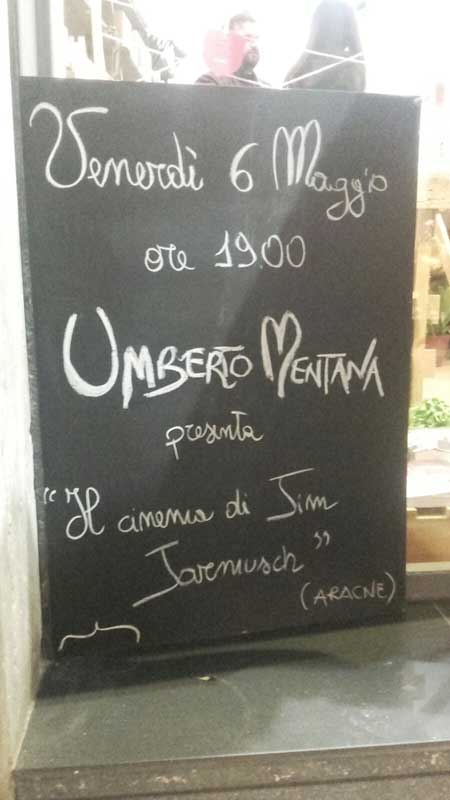 Venerdì 6 Maggio
ore 19.00
UMBERTO MENTANA
presenta
"Il cinema di Jim
Jarmusch"
(ARACNE)